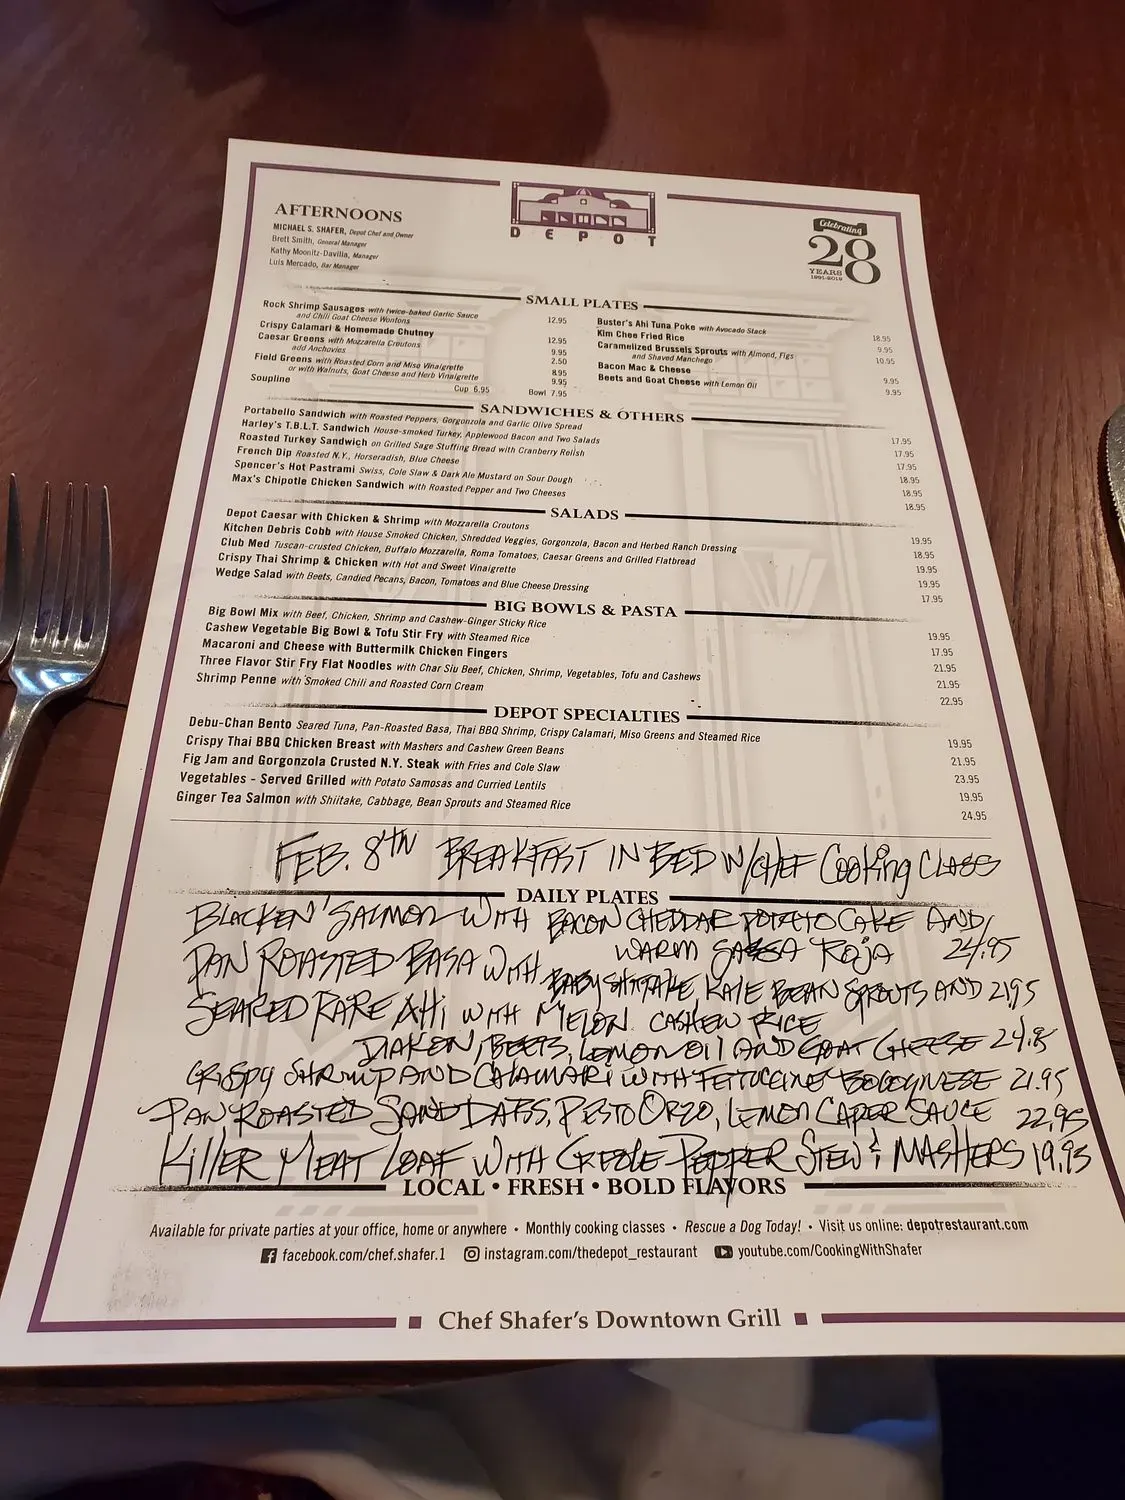 AFTERNOONS
MICHAEL S. SHAFER, Depot Chef and Owner
Brett Smith, General Manager
Kathy Moonitz-Davilla, Manager
Luis Mercado, Bar Manager
DEPOT
Celebrating
28
YEARS
1991-2019
SMALL PLATES
Rock Shrimp Sausages with twice-baked Garlic Sauce
and Chili Goat Cheese Wontons 12.95
Crispy Calamari & Homemade Chutney 12.95
Caesar Greens with Mozzarella Croutons 9.95
add Anchovies 2.50
Field Greens with Roasted Corn and Miso Vinaigrette 8.95
or with Walnuts, Goat Cheese and Herb Vinaigrette 9.95
Soupline Cup 6.95 Bowl 7.95
Buster's Ahi Tuna Poke with Avocado Stack 18.95
Kim Chee Fried Rice 9.95
Caramelized Brussels Sprouts with Almond, Figs
and Shaved Manchego 10.95
Bacon Mac & Cheese 9.95
Beets and Goat Cheese with Lemon Oil 9.95
SANDWICHES & OTHERS
Portabello Sandwich with Roasted Peppers, Gorgonzola and Garlic Olive Spread 17.95
Harley's T.B.L.T. Sandwich House-smoked Turkey, Applewood Bacon and Two Salads 17.95
Roasted Turkey Sandwich on Grilled Sage Stuffing Bread with Cranberry Relish 17.95
French Dip Roasted N.Y., Horseradish, Blue Cheese 18.95
Spencer's Hot Pastrami Swiss, Cole Slaw & Dark Ale Mustard on Sour Dough 18.95
Max's Chipotle Chicken Sandwich with Roasted Pepper and Two Cheeses 18.95
SALADS
Depot Caesar with Chicken & Shrimp with Mozzarella Croutons 19.95
Kitchen Debris Cobb with House Smoked Chicken, Shredded Veggies, Gorgonzola, Bacon and Herbed Ranch Dressing 18.95
Club Med Tuscan-crusted Chicken, Buffalo Mozzarella, Roma Tomatoes, Caesar Greens and Grilled Flatbread 19.95
Crispy Thai Shrimp & Chicken with Hot and Sweet Vinaigrette 19.95
Wedge Salad with Beets, Candied Pecans, Bacon, Tomatoes and Blue Cheese Dressing 17.95
BIG BOWLS & PASTA
Big Bowl Mix with Beef, Chicken, Shrimp and Cashew-Ginger Sticky Rice 19.95
Cashew Vegetable Big Bowl & Tofu Stir Fry with Steamed Rice 17.95
Macaroni and Cheese with Buttermilk Chicken Fingers 21.95
Three Flavor Stir Fry Flat Noodles with Char Siu Beef, Chicken, Shrimp, Vegetables, Tofu and Cashews 21.95
Shrimp Penne with Smoked Chili and Roasted Corn Cream 22.95
DEPOT SPECIALTIES
Debu-Chan Bento Seared Tuna, Pan-Roasted Basa, Thai BBQ Shrimp, Crispy Calamari, Miso Greens and Steamed Rice 19.95
Crispy Thai BBQ Chicken Breast with Mashers and Cashew Green Beans 21.95
Fig Jam and Gorgonzola Crusted N.Y. Steak with Fries and Cole Slaw 23.95
Vegetables - Served Grilled with Potato Samosas and Curried Lentils 19.95
Ginger Tea Salmon with Shiitake, Cabbage, Bean Sprouts and Steamed Rice 24.95
FEB. 8TH BREAKFAST IN BED W/CHEF Cooking CLASS
DAILY PLATES
BLACKEN' SALMON WITH BACON CHEDDAR POTATO CAKE AND
WARM SALSA ROJA 24.95
PAN ROASTED BASA WITH BABY SHITAKE, KALE BEAN SPROUTS AND 21.95
CASHEW RICE
SEARED RARE AHI WITH MELON
DIAKON, BEETS, LEMON OIL AND GOAT CHEESE
CRISPY SHRIMP AND CALAMARI WITH FETTUCCINE BOLOGNESE 21.95
PAN ROASTED SAND DABS, PESTO ORZO, LEMON CAPER SAUCE 22.95
KILLER MEAT LOAF WITH CREOLE PEPPER STEW & MASHERS 19.95
LOCAL • FRESH • BOLD FLAVORS
Available for private parties at your office, home or anywhere • Monthly cooking classes • Rescue a Dog Today! • Visit us online: depotrestaurant.com
facebook.com/chef.shafer.1 instagram.com/thedepot_restaurant youtube.com/CookingWithShafer
Chef Shafer's Downtown Grill